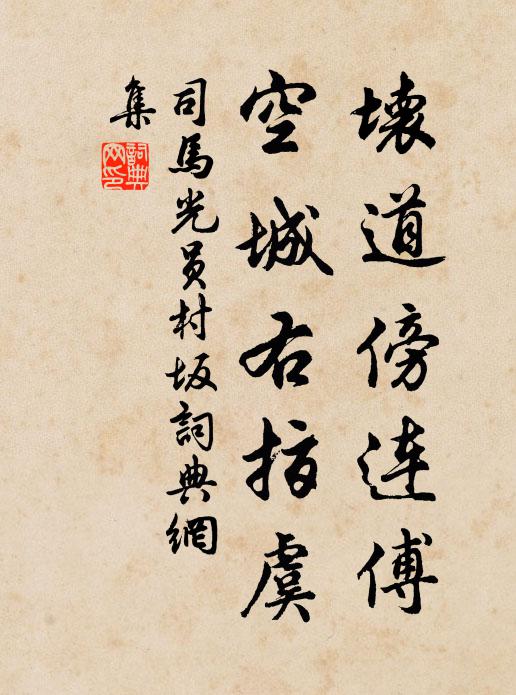 壞道傍連傅
空城右指虞
司馬光員村坂詞典網
集
詞典網印